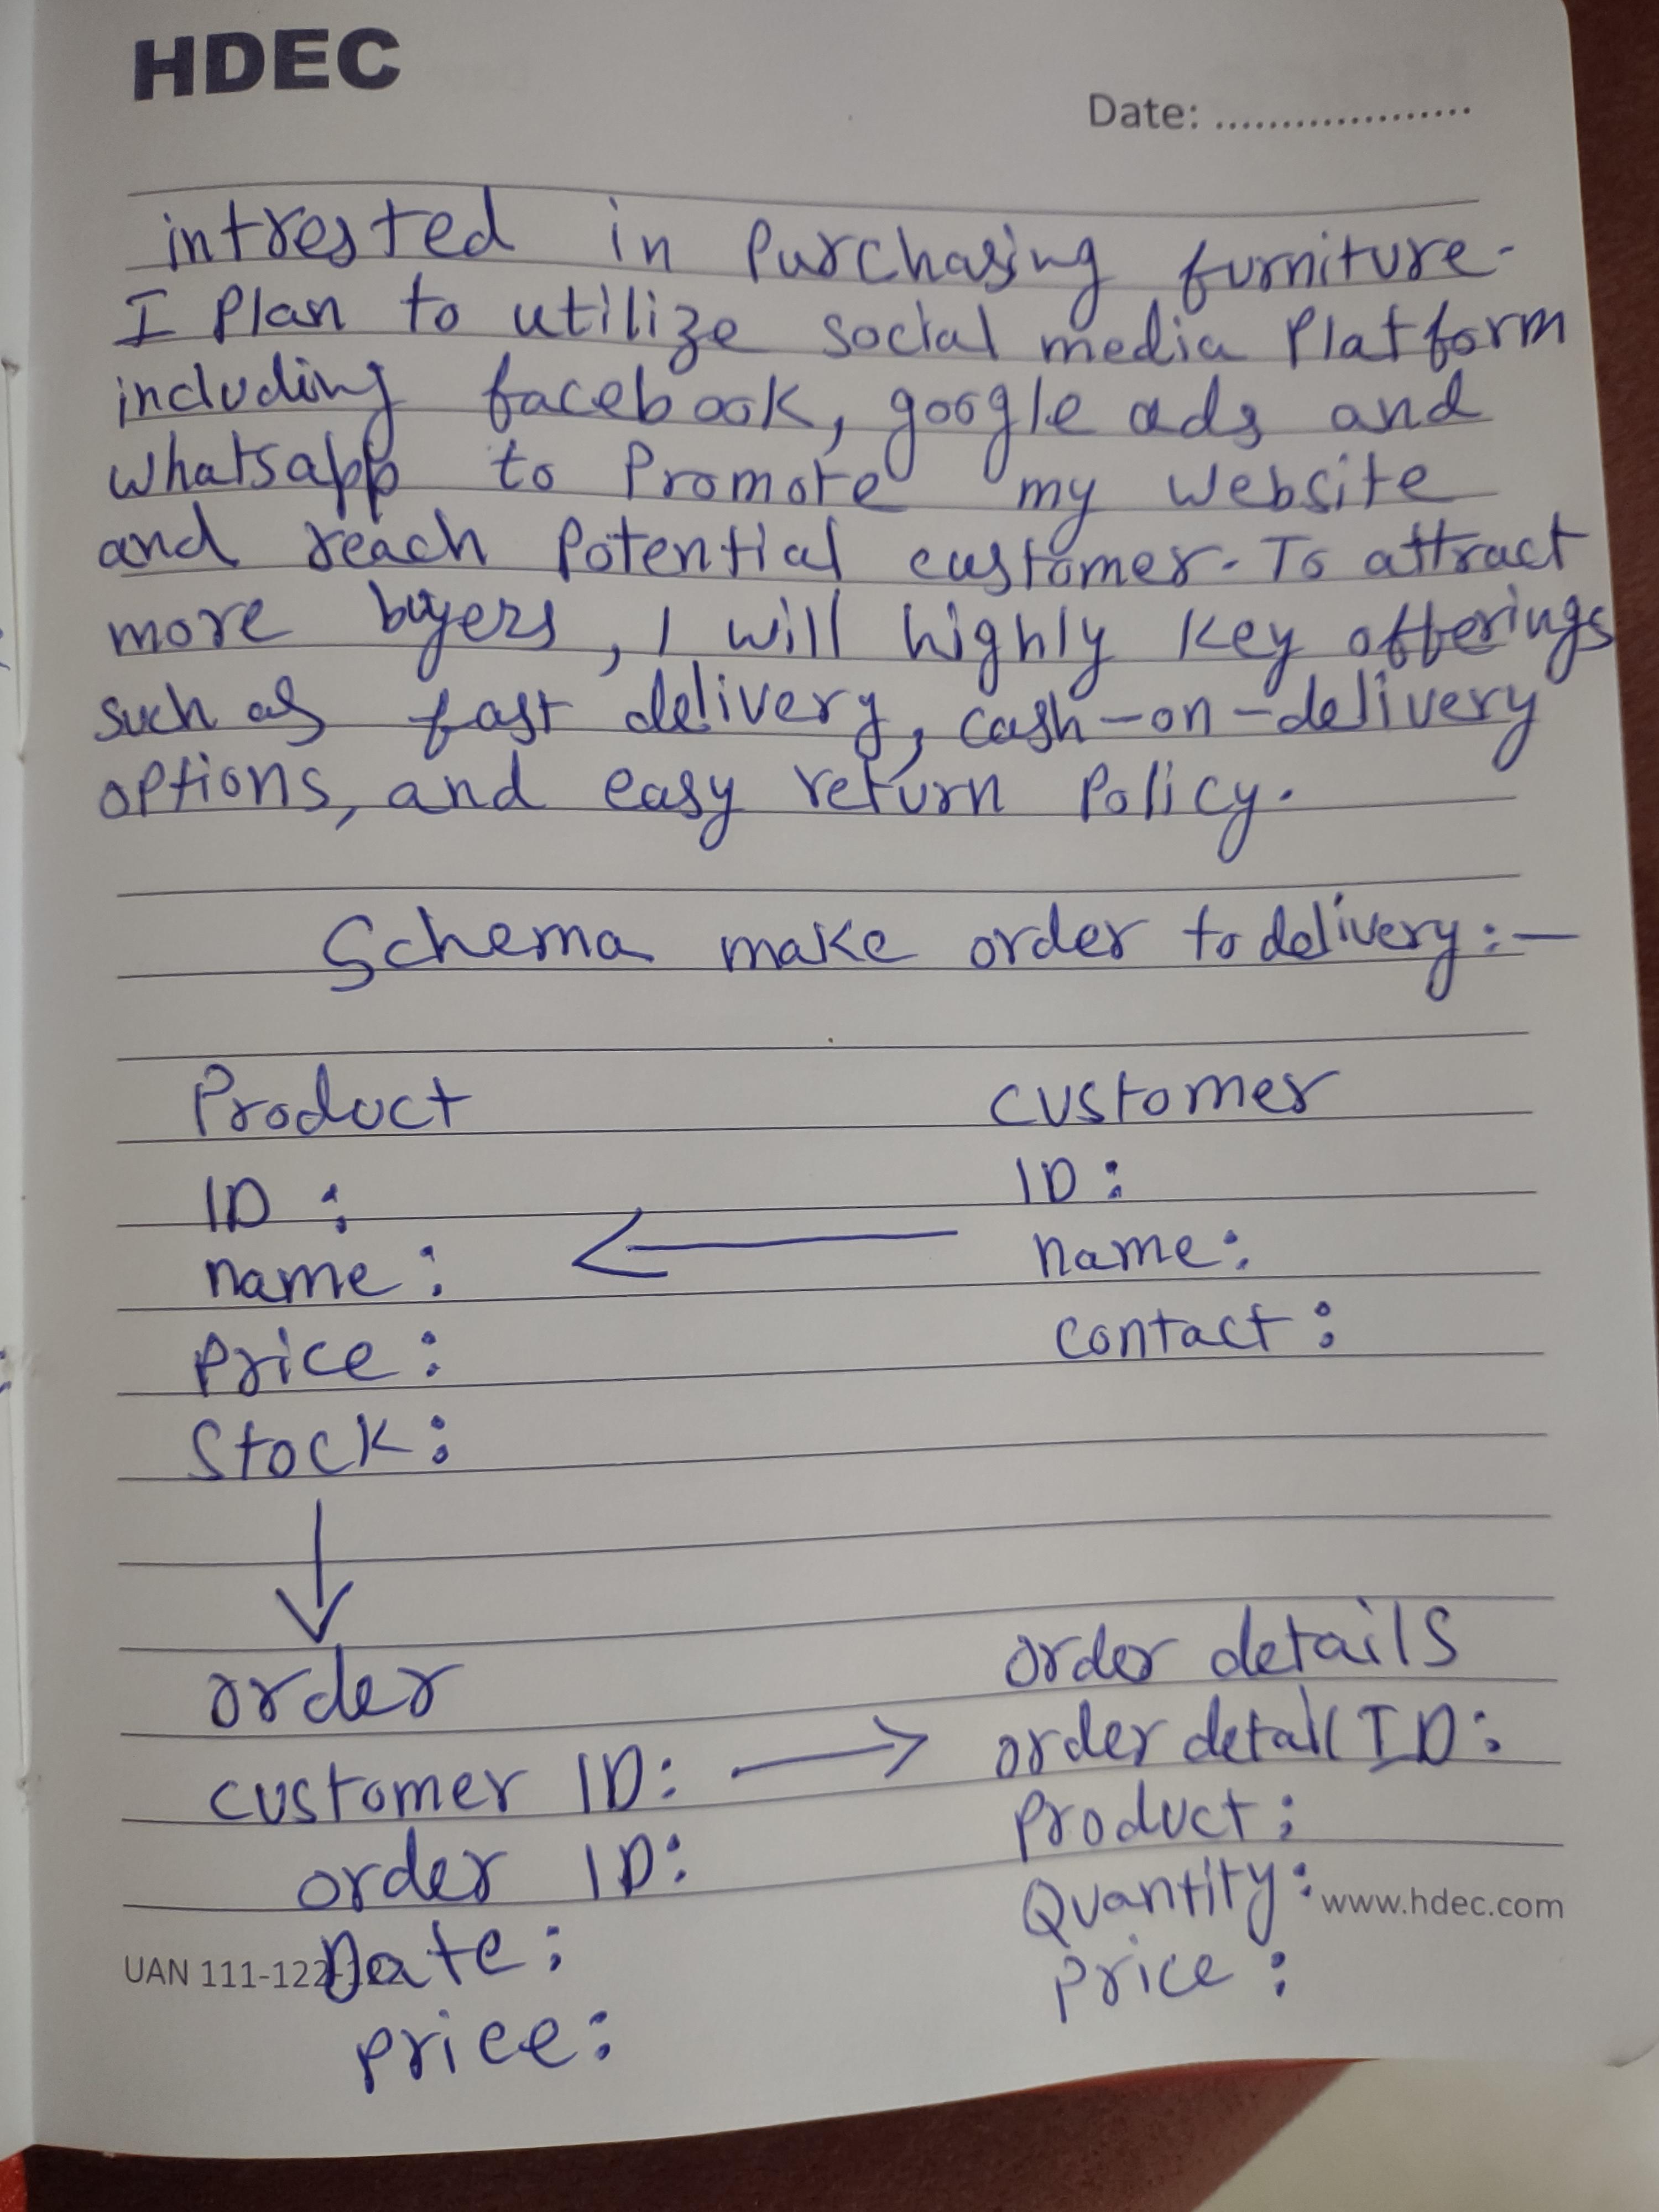 HDEC
Date: ...................
intrested in Purchasing furniture.
I Plan to utilize social media Platform
including facebook, google ads and
whatsapp to Promote my website
and reach Potential customer. To attract
more buyers, I will highly key offerings
such as fast delivery, cash-on-delivery
options, and easy return Policy.
Schema make order to delivery:-
Product
ID :
name :
Price :
Stock :
customer
ID :
name :
contact :
order
customer ID:
order ID:
Date :
price :
order details
order detail ID:
Product :
Quantity :
Price :
www.hdec.com
UAN 111-122-